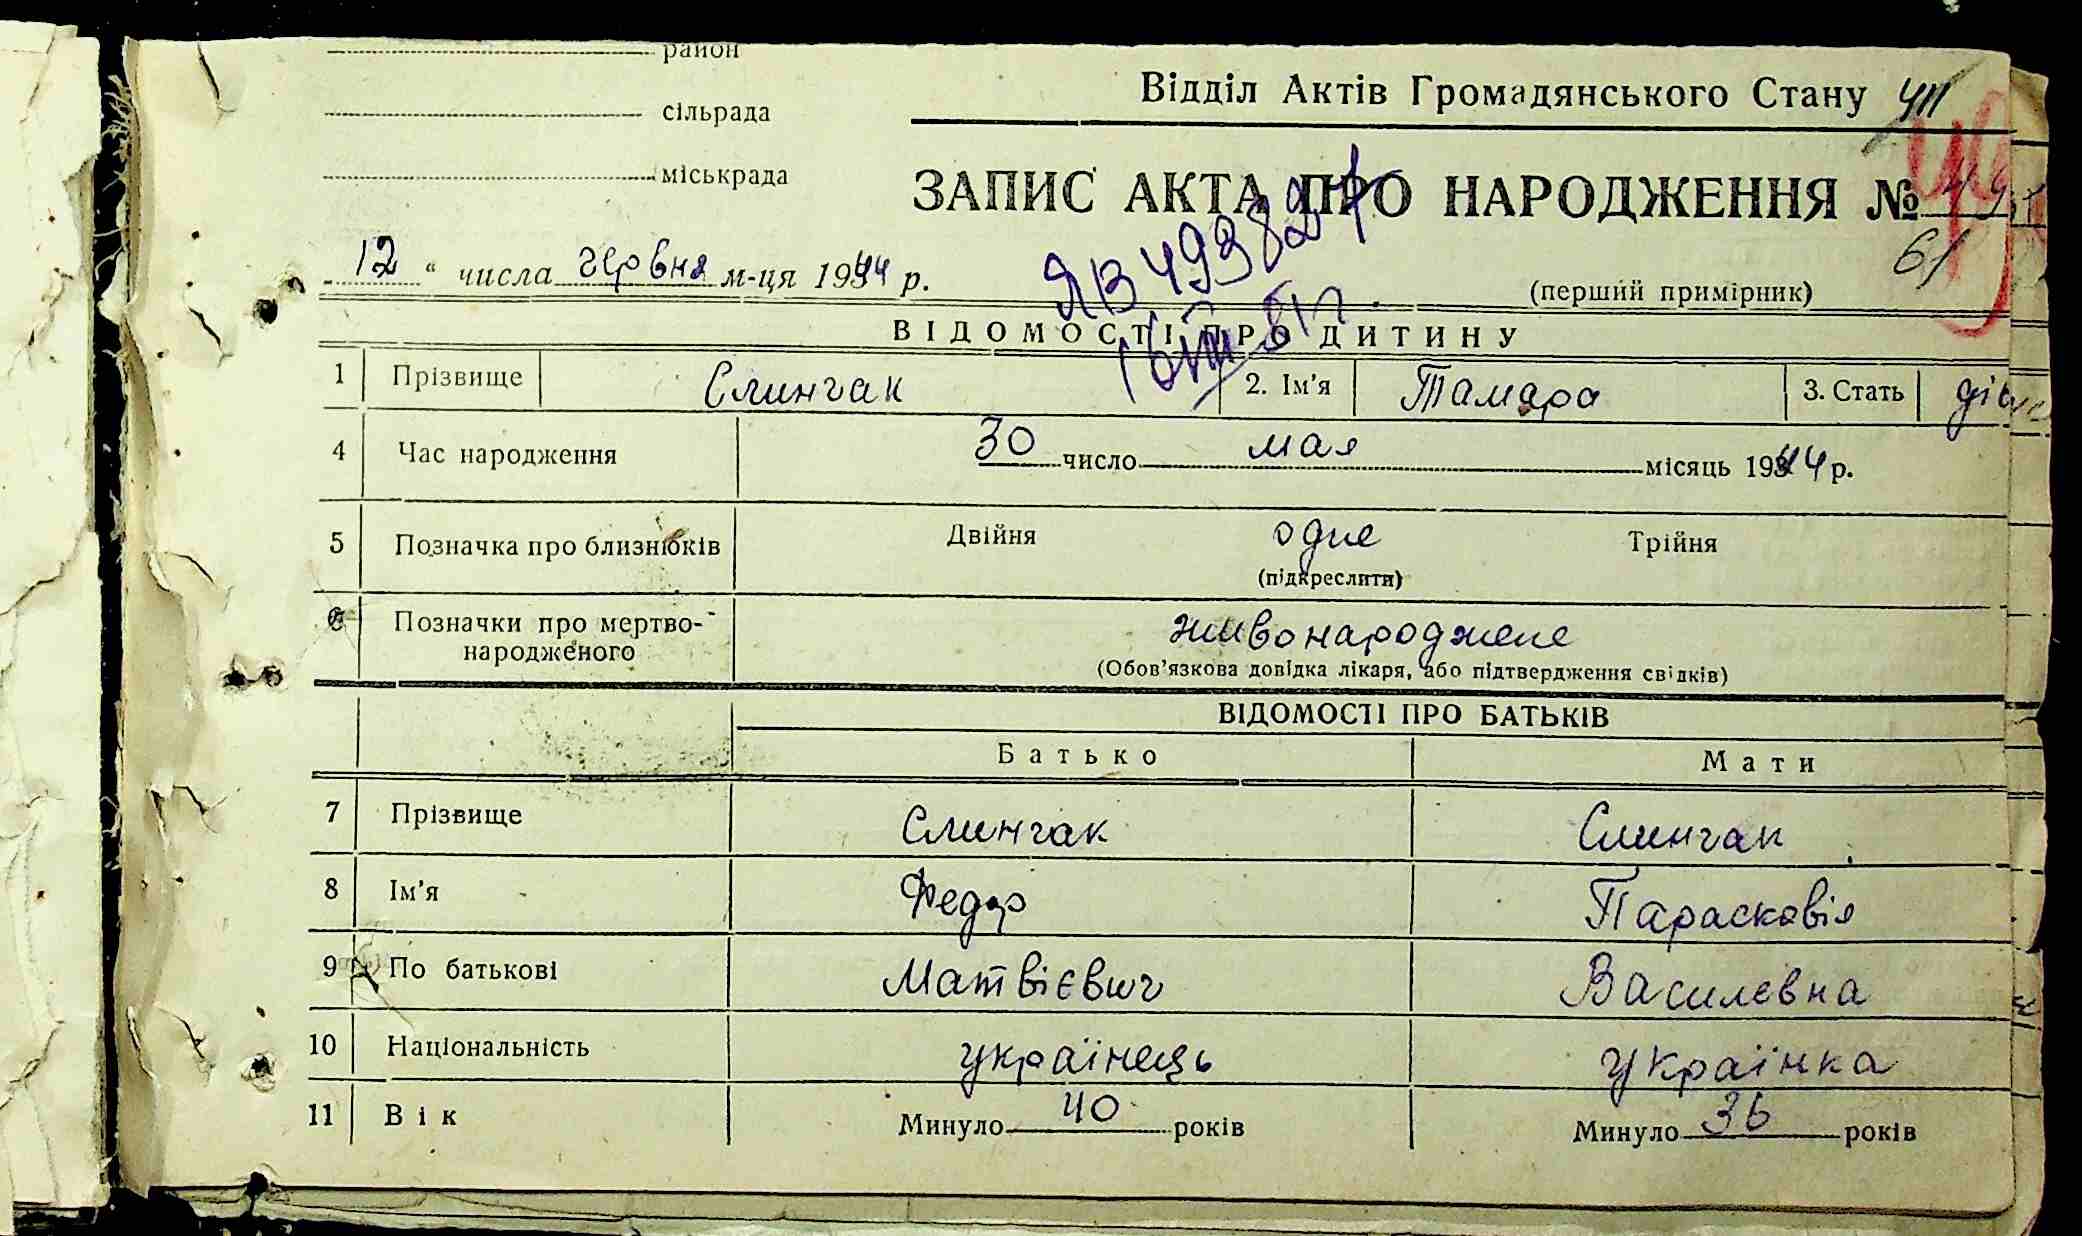 район
сільрада
міськрада
Відділ Актів Громадянського Стану
ЗАПИС АКТА ПРО НАРОДЖЕННЯ №
61
12 " числа червня м-ця 1944 р.
(перший примірник)
ВІДОМОСТІ ПРО ДИТИНУ
1 Прізвище Слинчак 2. Ім'я Тамара 3. Стать
4 Час народження 30 число мая місяць 1944 р.
5 Позначка про близнюків Двійня одне Трійня
(підкреслити)
6 Позначки про мертво-
народженого живонароджене
(Обов'язкова довідка лікаря, або підтвердження свідків)
ВІДОМОСТІ ПРО БАТЬКІВ
Батько Мати
7 Прізвище Слинчак Слинчак
8 Ім'я Федор Парасковія
9 По батькові Матвієвич Василєвна
10 Національність українець українка
11 Вік Минуло 40 років Минуло 36 років